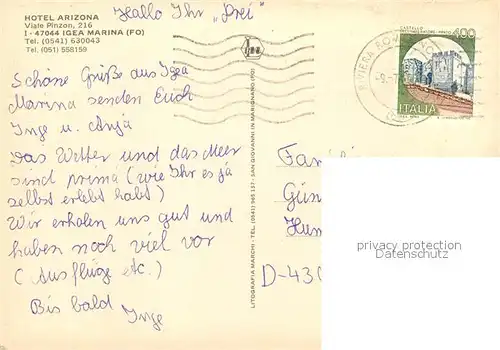 HOTEL ARIZONA
Viale Pinzon, 216
I - 47044 IGEA MARINA (FO)
Tel. (0541) 630043
Tel. (051) 558159
Hallo Ihr "Drei"
Schöne Grüße aus Igea
Marina senden Euch
Inge u. Anja
Das Wetter und das Meer
sind prima (wie Ihr es ja
selbst erlebt habt)
Wir erholen uns gut und
haben noch viel vor
(Ausflüge etc.)
Bis bald Inge
LITOGRAFIA MARCHI - TEL. (0541) 965.137 - SAN GIOVANNI IN MARIGNANO (FO)
RIVIERA
CASTELLO
PRATO
400
ITALIA
Fam
Gün
Hum
D-430
privacy protection